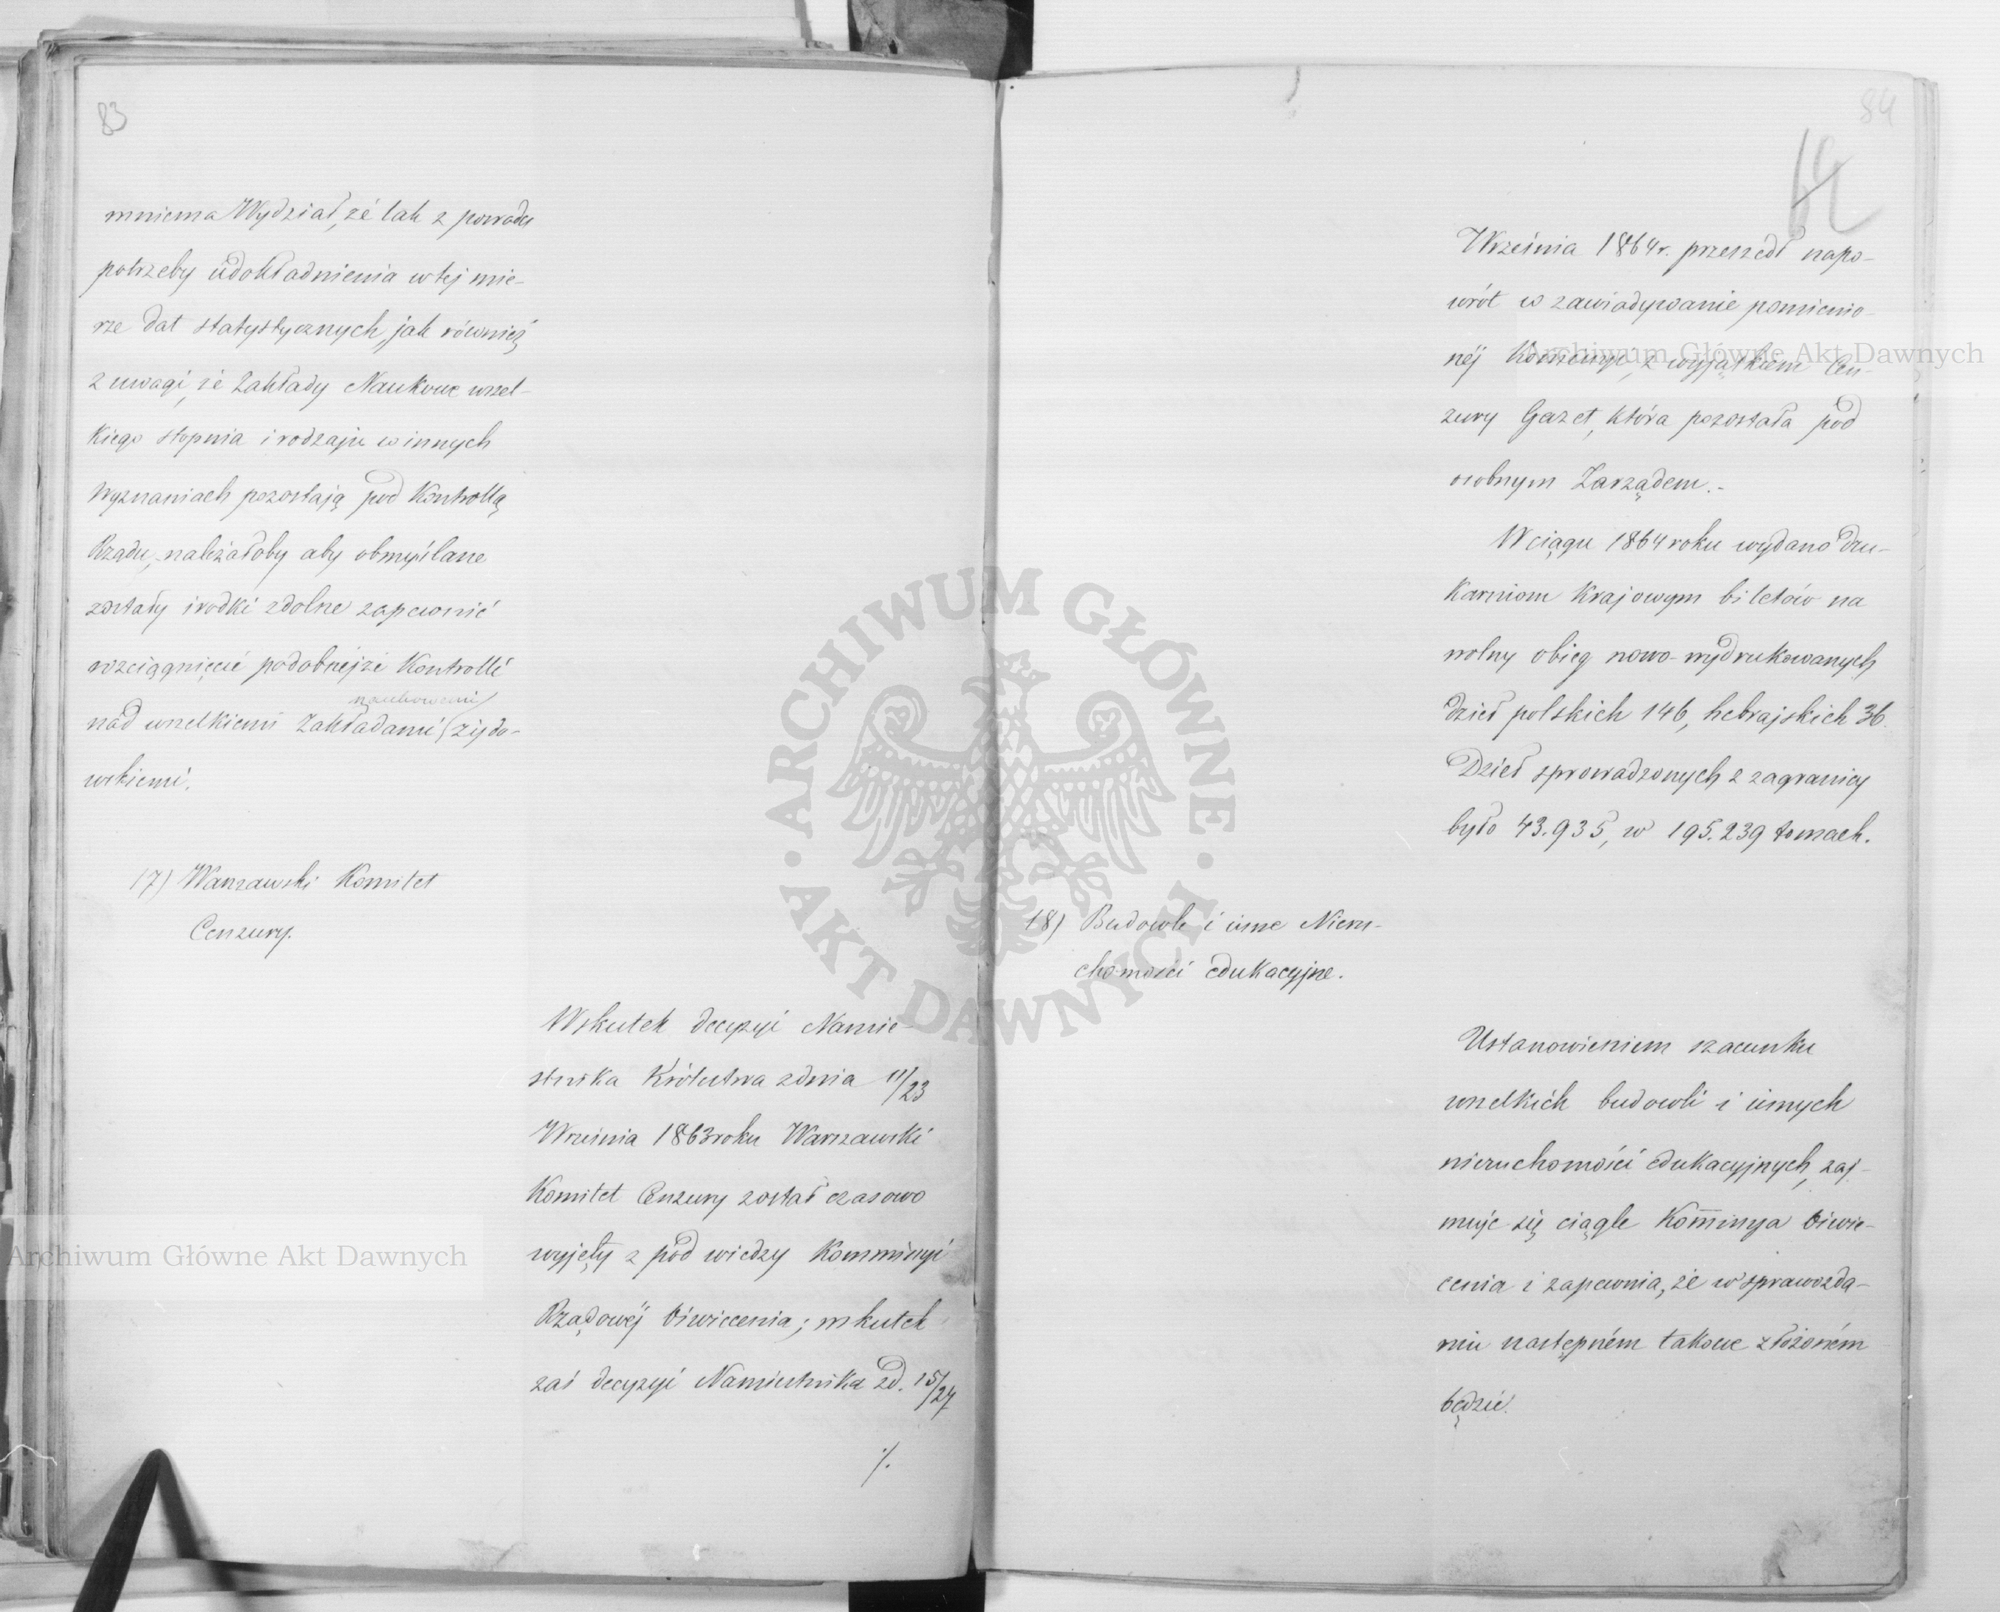 83
mniema Wydział, że tak z powodu
potrzeby udokładnienia w tej mie-
rze dat statystycznych, jak również
z uwagi, że Zakłady Naukowe wszel-
kiego stopnia i rodzaju w innych
wyznaniach pozostają pod Kontrollą
Rządu, należałoby aby obmyślane
zostały środki zdolne zapewnić
rozciągnięcie podobnejże Kontrolli
naukowemi
nad wszelkiemi Zakładami żydo-
wskiemi.
17) Warszawski Komitet
Cenzury.
Wskutek decyzyi Namie-
stnika Królestwa z dnia 11/23
Września 1863 roku Warszawski
Komitet Cenzury został czasowo
wyjęty z pod wiedzy Kommissyi
Rządowéj Oświecenia; wskutek
zaś decyzyi Namiestnika z d. 15/27
·/.
84
62
Września 1864 r. przeszedł napo-
wrót w zawiadywanie pomienio-
néj Kommissyi, z wyjątkiem Cen-
zury Gazet, która pozostała pod
osobnym Zarządem.-
W ciągu 1864 roku wydano dru-
karniom Krajowym biletów na
wolny obieg nowo-wydrukowanych
dzieł polskich 146, hebrajskich 36.
Dzieł sprowadzonych z zagranicy
było 43.935, w 195.239 tomach.
18) Budowle i inne Nieru-
chomości edukacyjne.
Ustanowieniem szacunku
wszelkich budowli i innych
nieruchomości edukacyjnych, zaj-
muje się ciągle Kommissya Oświe-
cenia i zapewnia, że w sprawozda-
niu następném takowe złożoném
będzie.
ARCHIWUM GŁÓWNE
AKT DAWNYCH
Archiwum Główne Akt Dawnych
Archiwum Główne Akt Dawnych